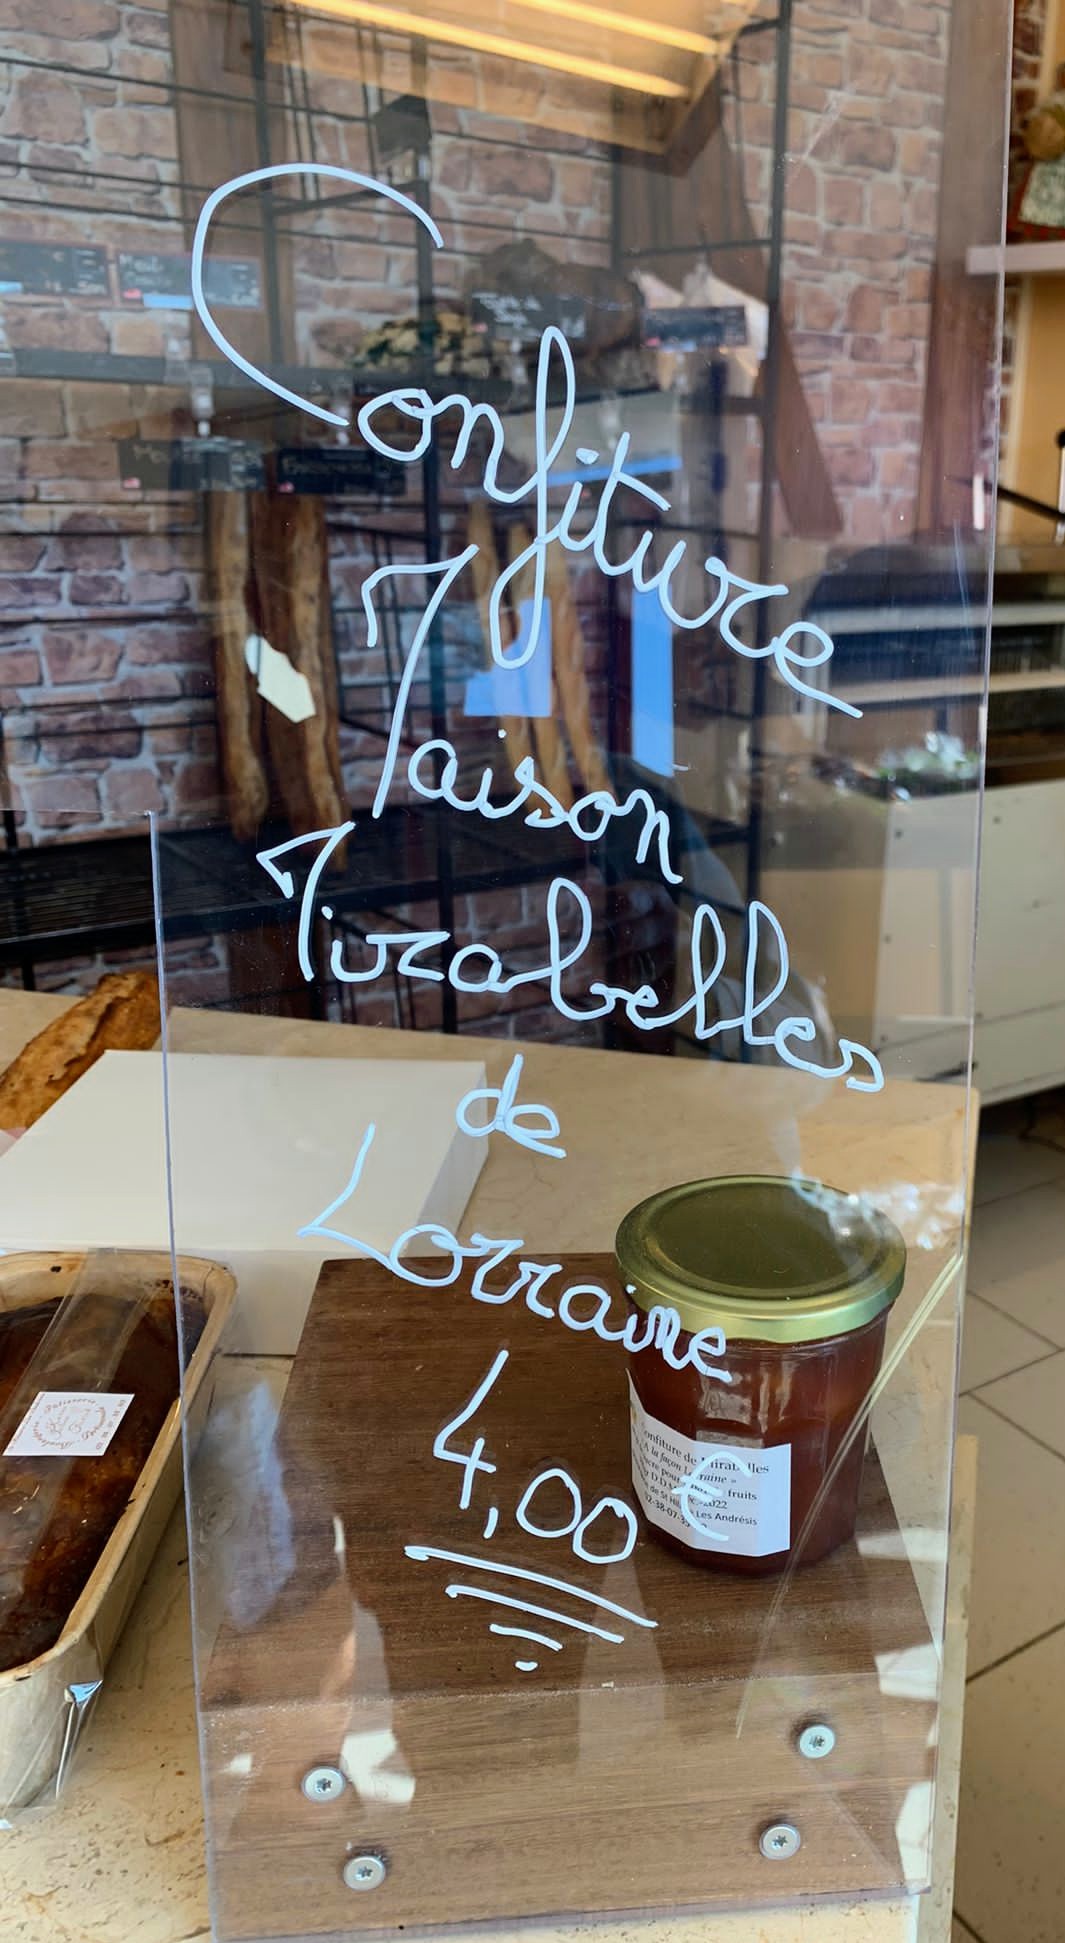 Confiture
Maison
Mirabelles
de
Lorraine
4,00 €
onfiture de mirabelles
A la façon Lorraine »
fruits
2022
de St Hil Les Andrésis
02-38-07-3
Patisserie
Boulangerie